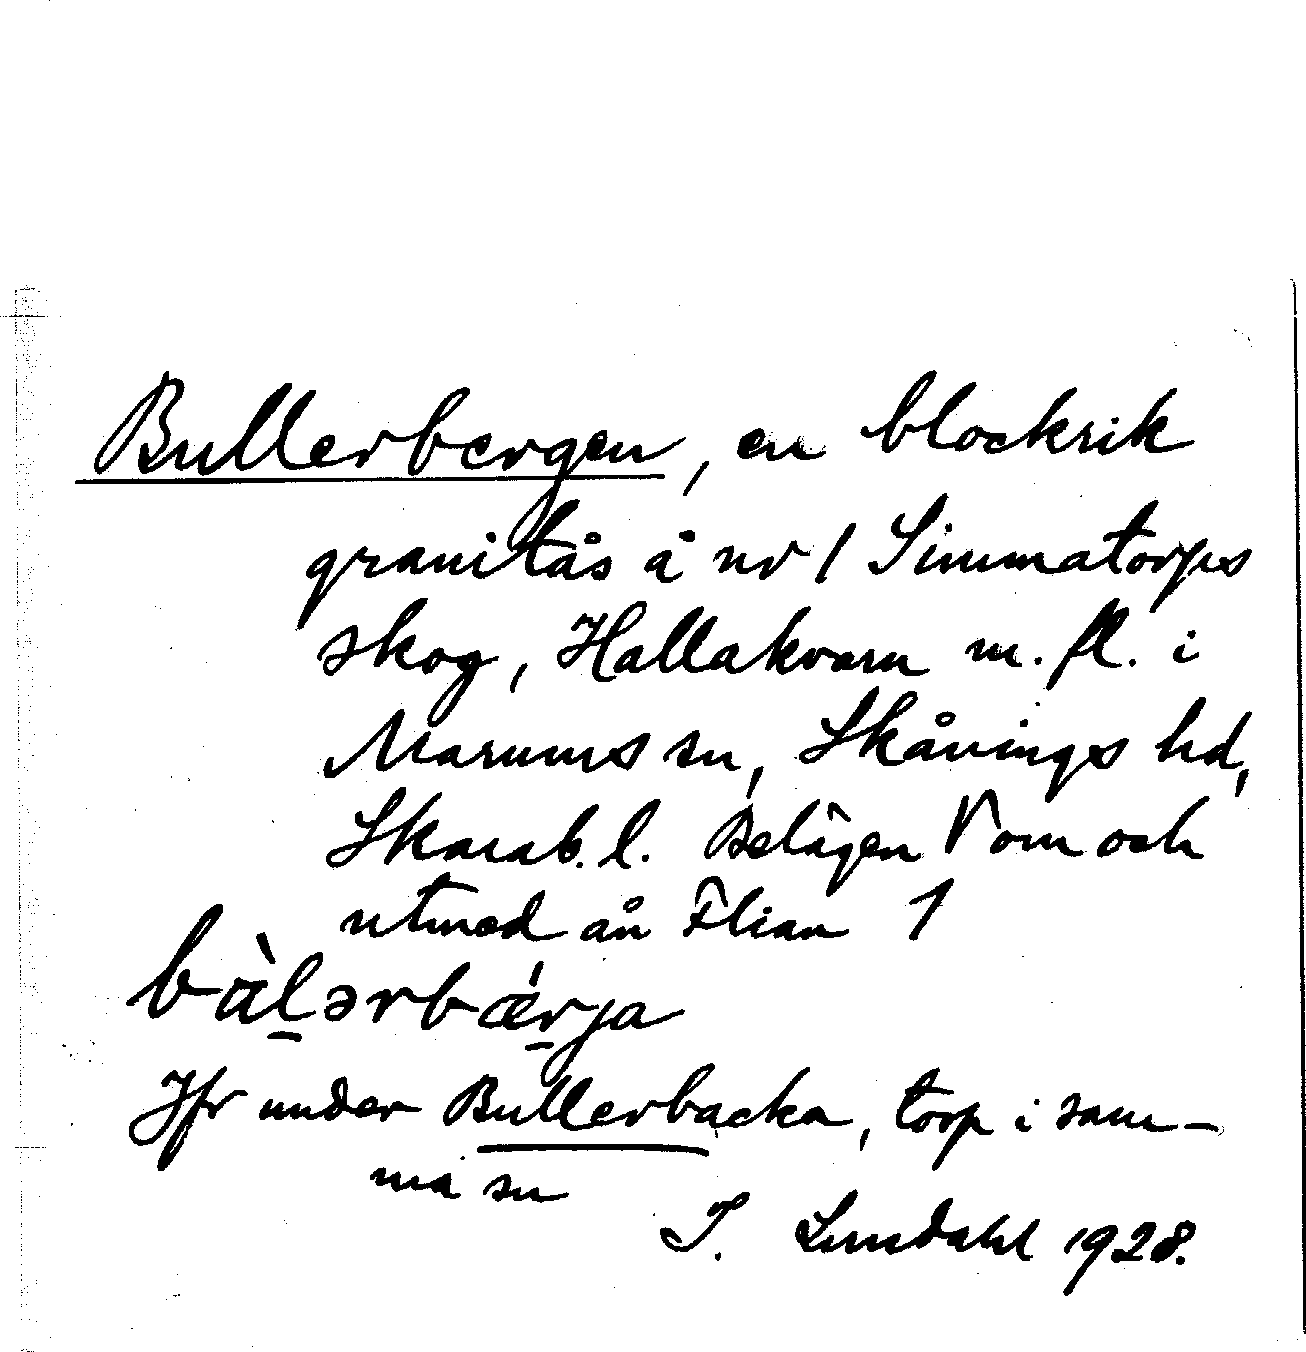 Bullerbergen, en blockrik
granitås å nr 1 Simmatorps
skog, Hallakvarn m. fl. i
Marums sn, Skånings hd,
Skarab. l. Belägen V om och
utmed ån Flian
bàl̠ərbǽr̠ja
Jfr under Bullerbacka, torp i sam-
ma sn
I. Lundahl 1928.